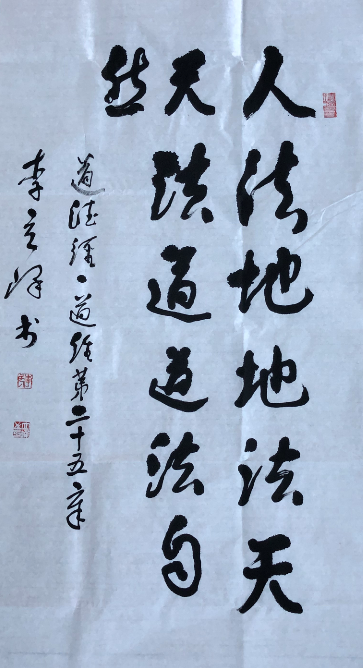 人法地地法天
天法道道法自
然
道德經·道經第二十五章
李立祥书